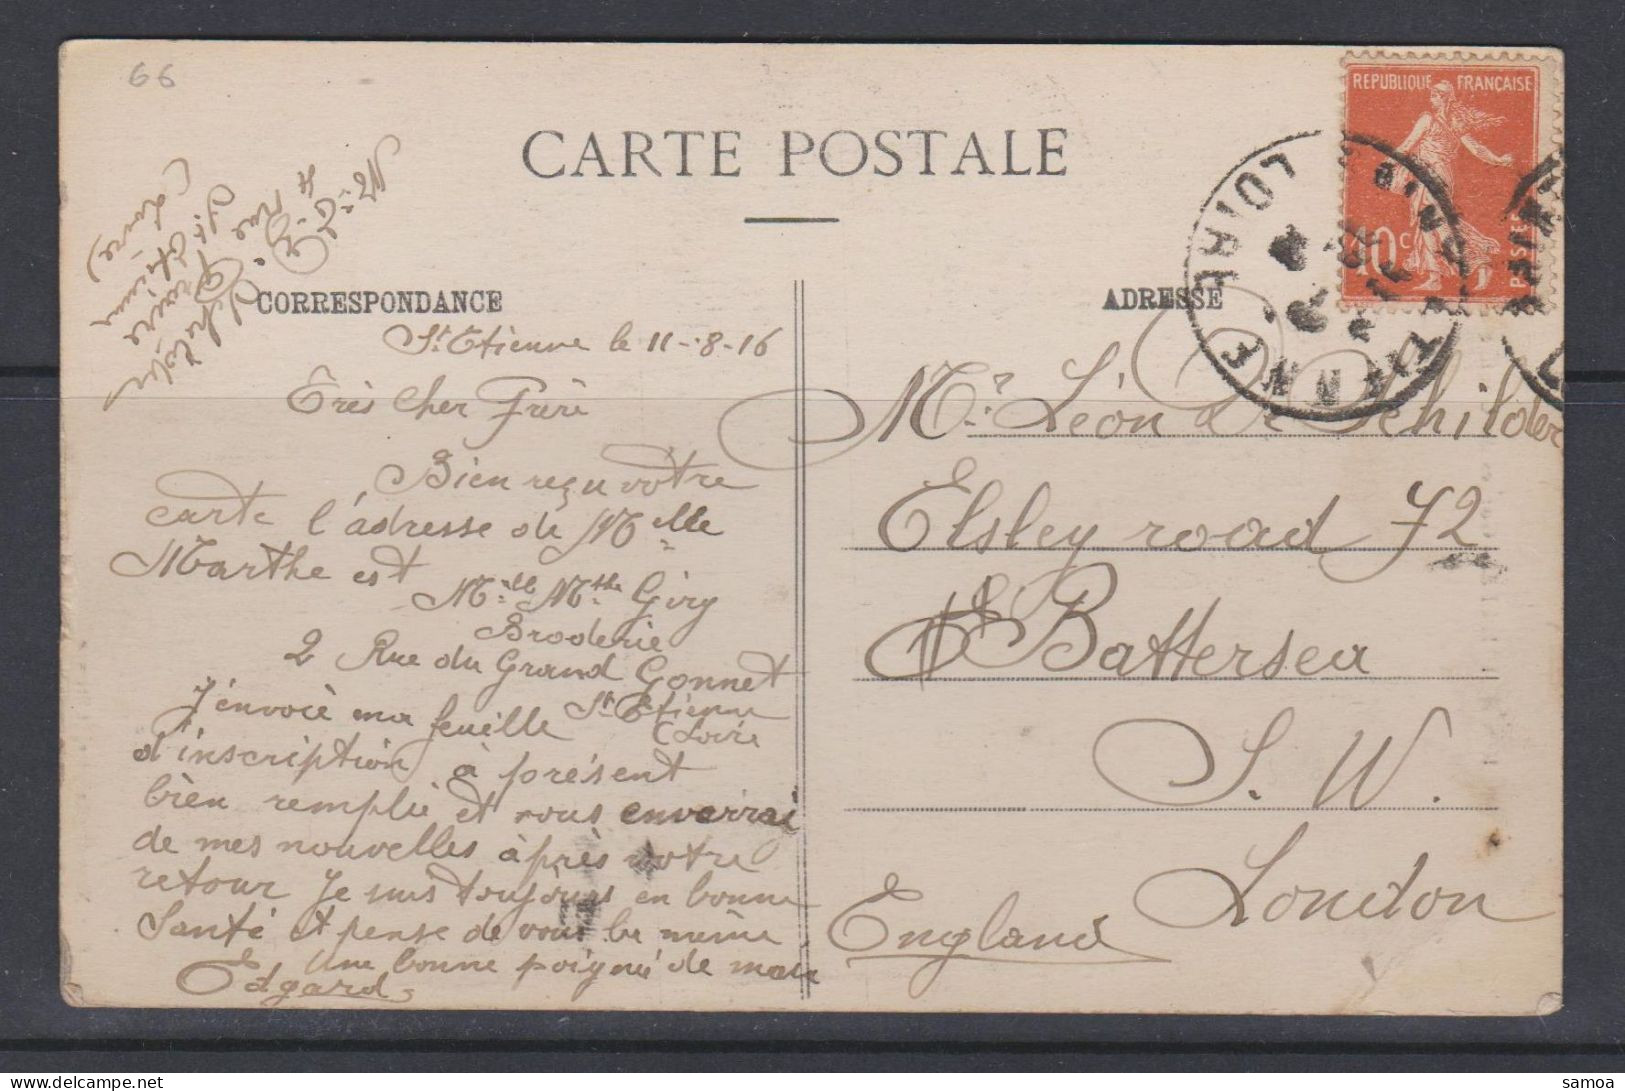 66
CARTE POSTALE
REPUBLIQUE FRANÇAISE
10c
POSTES
LOIRE
CORRESPONDANCE
ADRESSE
4 Rue
St Etienne
(Loire)
St Etienne le 11-8-16
Très cher Frère
Bien reçu votre
carte l'adresse de Melle
Marthe est
Melle Mthe Giry
Broderie
2 Rue du Grand Gonnet
St Etienne
(Loire
J'envoie ma feuille
d'inscription à présent
bien remplie et vous enverrai
de mes nouvelles après votre
retour Je suis toujours en bonne
Santé et pense de vous le même
une bonne poignée de main
Edgard
Mr Léon De Schilder
Elsley road 72
Battersea
S. W.
London
England
samoa
delcampe.net